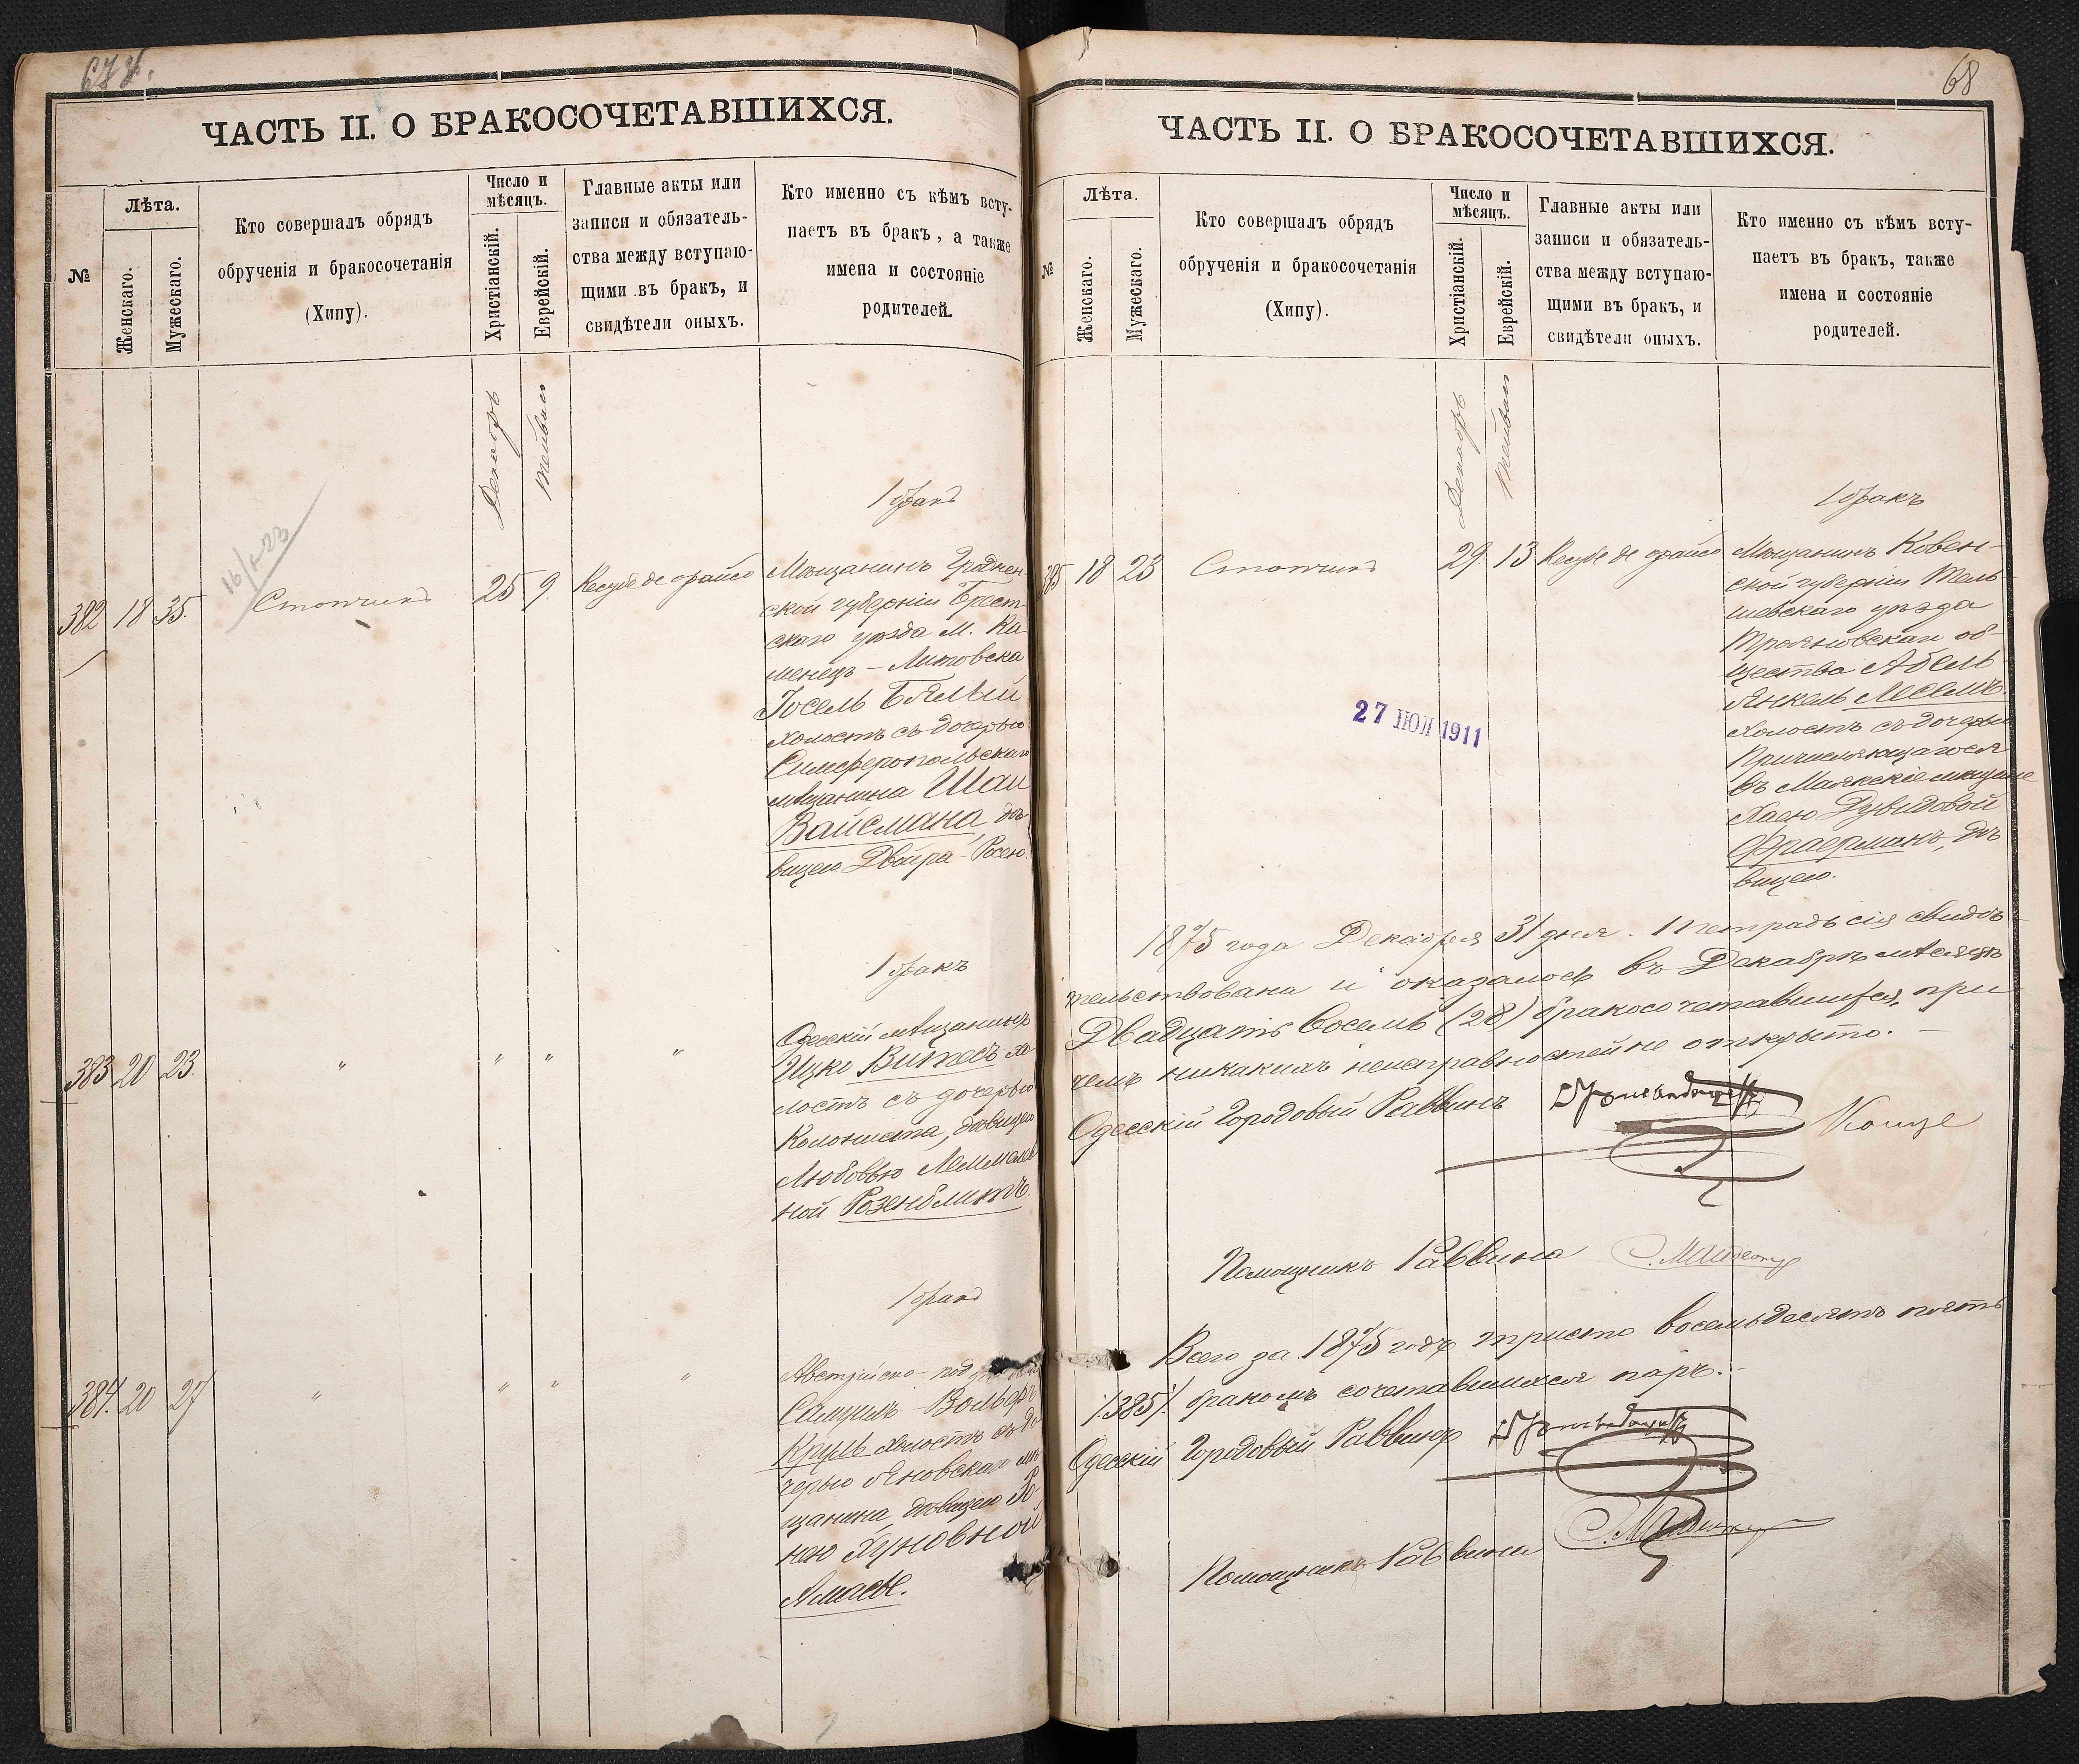 ЧАСТЬ II. О БРАКОСОЧЕТАВШИХСЯ.
№
Лѣта.
Женскаго.
Мужескаго.
Кто совершалъ обрядъ
обрученія и бракосочетанія
(Хипу).
Число и
мѣсяцъ.
Христіанскій.
Еврейскій.
Главные акты или
записи и обязатель-
ства между вступаю-
щими въ бракъ, и
свидѣтели оныхъ.
Кто именно съ кѣмъ всту-
паетъ въ бракъ, а также
имена и состояніе
родителей.
Декабрь
Тейвес
1 бракъ
382 18 35. 25 9.
Мѣщанинъ Гроднен-
ской губерніи Брест-
скаго уѣзда М. Ка-
менец-Литовска
Іосель Бялый
холостъ съ дочерью
Симферопольскаго
мѣщанина Шаи
Вайсмана, дѣ-
вицею Двойра-Росею.
1 бракъ
383 20 23. " " " "
Одесскій мѣщанинъ
Ицко Витесъ хо-
лостъ съ дочерью
Колониста, дѣвицею
Любовью
ной Розенблитъ
1 бракъ
384. 20 27 " " " "
Австрійско-под
Самуилъ-Вольфъ
Круль холостъ съ до-
черью Яновскаго мѣ-
щанина, дѣвицею

68
ЧАСТЬ II. О БРАКОСОЧЕТАВШИХСЯ.
№
Лѣта.
Женскаго.
Мужескаго.
Кто совершалъ обрядъ
обрученія и бракосочетанія
(Хипу).
Число и
мѣсяцъ.
Христіанскій.
Еврейскій.
Главные акты или
записи и обязатель-
ства между вступаю-
щими въ бракъ, и
свидѣтели оныхъ.
Кто именно съ кѣмъ всту-
паетъ въ бракъ, также
имена и состояніе
родителей.
Декабрь
Тейвес
1 бракъ
385 18 23 29. 13
Мѣщанинъ Ковен-
ской губерніи Тель-
шевскаго уѣзда
об-
щества Абель
Янкель
холостъ съ дочерью
Причисляющагося
въ Маякскіе мѣщане
Хаею Дувидовой
Фраерманъ, дѣ-
вицею.
27 ІЮЛ 1911
1875 года Декабря 31 дня. Тетрадь сія свидѣ-
тельствована и оказалось въ Декабрѣ мѣсяцѣ
Двадцать восемь (28) бракосочетавшихся, при
чемъ никакихъ неисправностей не открыто.
Одесскій Городовый Раввинъ
Помощникъ Раввина
Всего за 1875 годъ триста восемьдесятъ пять
/385/. бракомъ сочетавшихся паръ.
Одесскій Городовый Раввинъ
Помощникъ Раввина